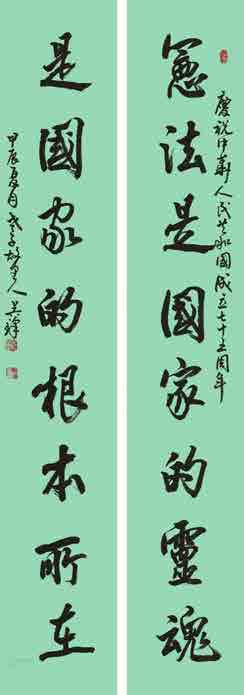 慶祝中華人民共和國成立七十五周年
憲法是國家的靈魂
是國家的根本所在
甲辰夏月老子故里人